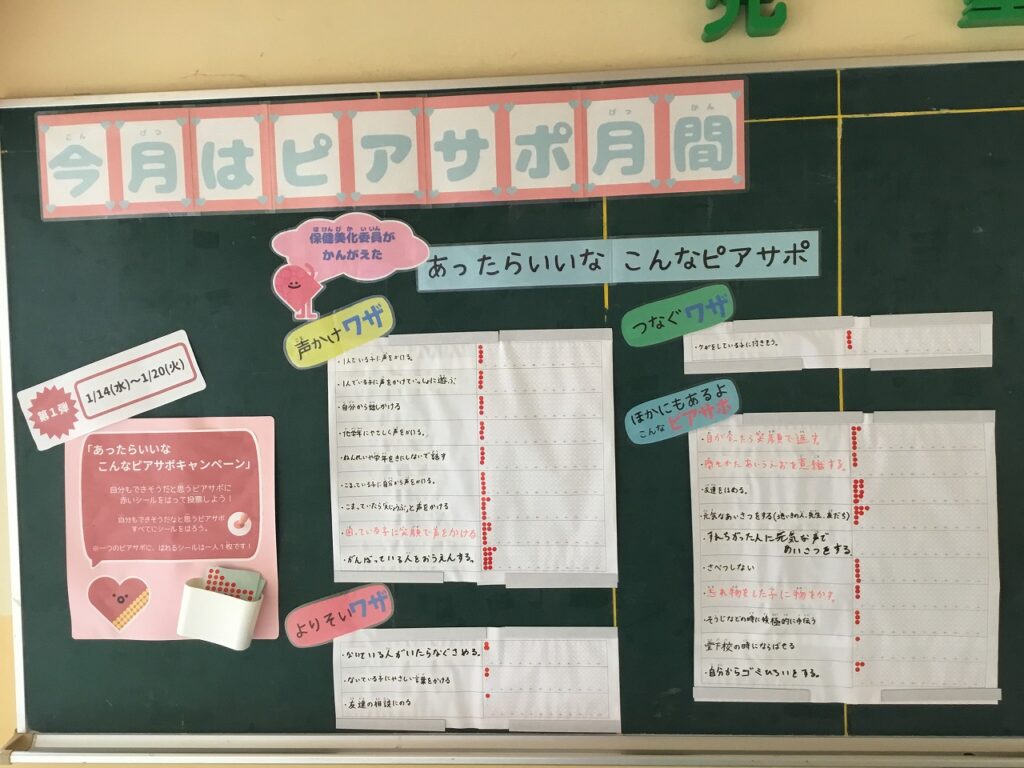 今月はピアサポ月間
保健美化委員が
かんがえた
あったらいいな こんなピアサポ
声かけワザ
・1人でいる子に声をかける。
・1人でいる子に声をかけていっしょに遊ぶ
・自分から話しかける
・他学年にやさしく声をかける。
・ねんれいや学年をきにしないで話す
・こまっている子に自分から声をかける。
・こまっていたら「大じょうぶ」と声をかける
・困っている子に笑顔で声をかける
・がんばっている人をおうえんする。
よりそいワザ
・ないている人がいたらなぐさめる。
・ないている子にやさしい言葉をかける
・友達の相談にのる
つなぐワザ
・ケガをしている子に付きそう。
ほかにもあるよ
こんなピアサポ
・目が合ったら笑顔で返す
・あいうえおを意識する。
・友達をほめる。
・元気なあいさつをする(地いきの人、先生、友だち)
・すれちがった人に元気な声で
あいさつをする
・さべつしない
・忘れ物をした子に物をかす。
・そうじなどの時に積極的に手伝う
登下校の時にならばせる
・自分からゴミひろいをする。
第1弾
1/14(水)～1/20(火)
「あったらいいな
こんなピアサポキャンペーン」
自分もできそうだと思うピアサポに
赤いシールをはって投票しよう！
自分もできそうだなと思うピアサポ
すべてにシールをはろう。
※一つのピアサポに、はれるシールは一人1枚です！